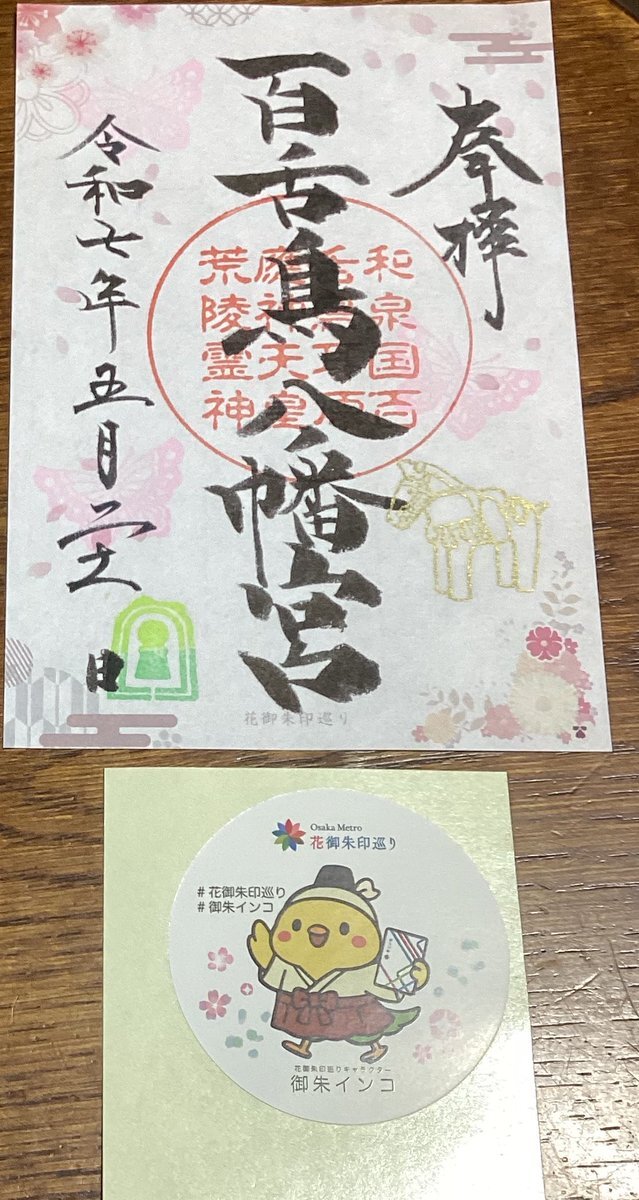 奉拝
百舌鳥八幡宮
和泉国百
應神天皇
荒陵霊神
令和七年五月
日
花御朱印巡り
Osaka Metro
花御朱印巡り
#花御朱印巡り
#御朱インコ
花御朱印巡りキャラクター
御朱インコ